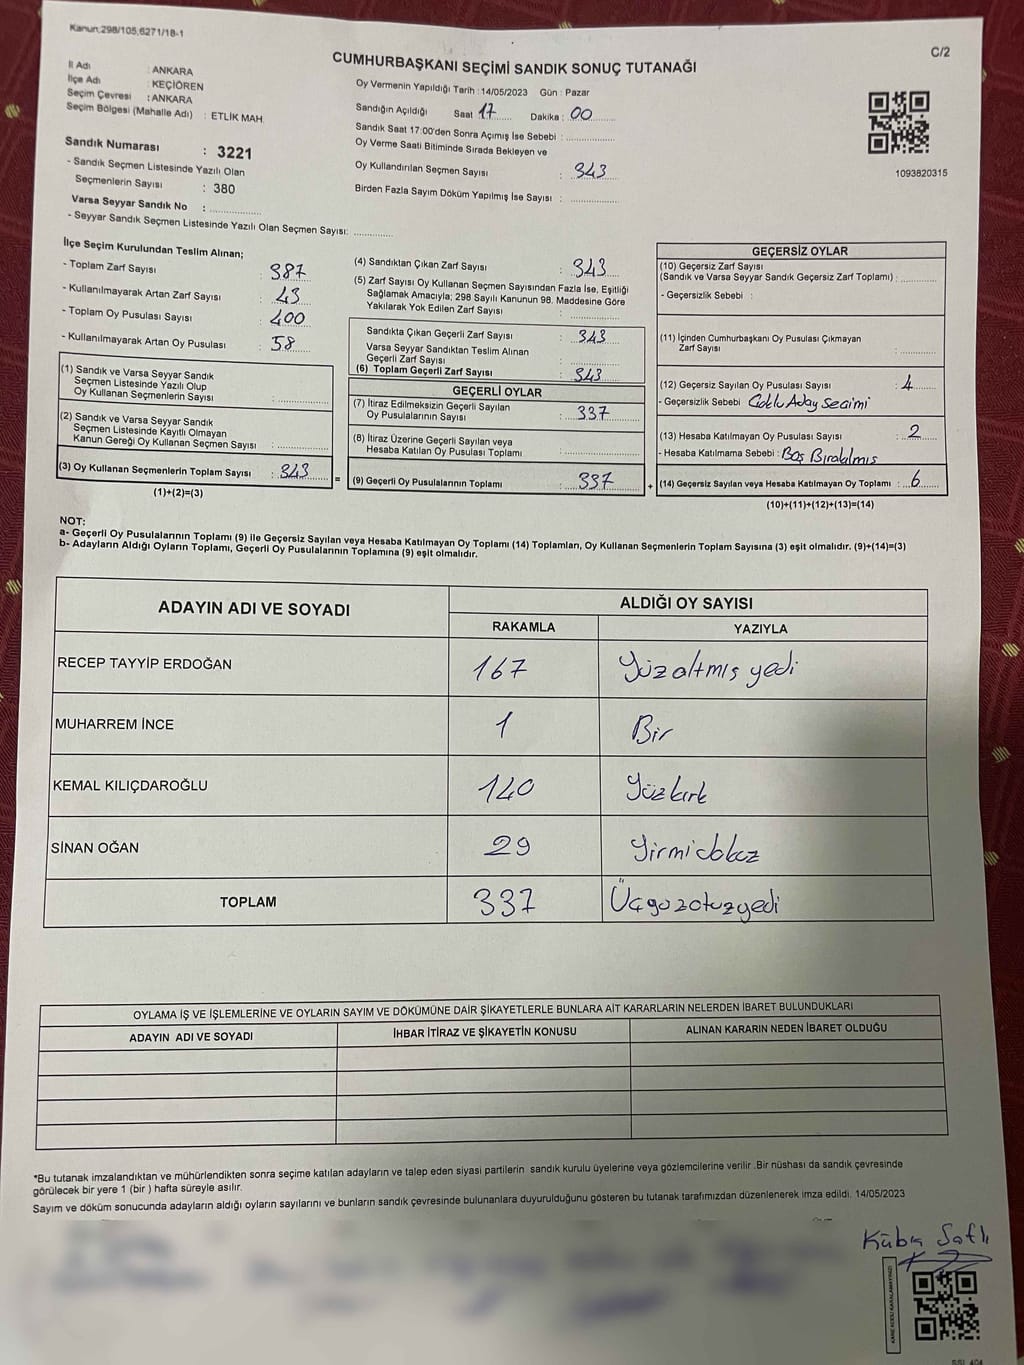 Kanun;298/105,6271/18-1
C/2
CUMHURBAŞKANI SEÇİMİ SANDIK SONUÇ TUTANAĞI
İl Adı : ANKARA
İlçe Adı : KEÇİÖREN
Seçim Çevresi : ANKARA
Seçim Bölgesi (Mahalle Adı) : ETLİK MAH.
Sandık Numarası : 3221
- Sandık Seçmen Listesinde Yazılı Olan
Seçmenlerin Sayısı : 380
Varsa Seyyar Sandık No :
- Seyyar Sandık Seçmen Listesinde Yazılı Olan Seçmen Sayısı:
Oy Vermenin Yapıldığı Tarih : 14/05/2023 Gün : Pazar
Sandığın Açıldığı Saat 17 Dakika : 00
Sandık Saat 17:00'den Sonra Açımış İse Sebebi :
Oy Verme Saati Bitiminde Sırada Bekleyen ve
Oy Kullandırılan Seçmen Sayısı : 343
Birden Fazla Sayım Döküm Yapılmış İse Sayısı :
1093820315
İlçe Seçim Kurulundan Teslim Alınan;
- Toplam Zarf Sayısı : 387
- Kullanılmayarak Artan Zarf Sayısı : 43
- Toplam Oy Pusulası Sayısı : 400
- Kullanılmayarak Artan Oy Pusulası : 58
(1) Sandık ve Varsa Seyyar Sandık
Seçmen Listesinde Yazılı Olup
Oy Kullanan Seçmenlerin Sayısı :
(2) Sandık ve Varsa Seyyar Sandık
Seçmen Listesinde Kayıtlı Olmayan
Kanun Gereği Oy Kullanan Seçmen Sayısı :
(3) Oy Kullanan Seçmenlerin Toplam Sayısı : 343 =
(1)+(2)=(3)
(4) Sandıktan Çıkan Zarf Sayısı : 343
(5) Zarf Sayısı Oy Kullanan Seçmen Sayısından Fazla İse, Eşitliği
Sağlamak Amacıyla; 298 Sayılı Kanunun 98. Maddesine Göre
Yakılarak Yok Edilen Zarf Sayısı :
Sandıkta Çıkan Geçerli Zarf Sayısı : 343
Varsa Seyyar Sandıktan Teslim Alınan
Geçerli Zarf Sayısı :
(6) Toplam Geçerli Zarf Sayısı : 343
GEÇERLİ OYLAR
(7) İtiraz Edilmeksizin Geçerli Sayılan
Oy Pusulalarının Sayısı : 337
(8) İtiraz Üzerine Geçerli Sayılan veya
Hesaba Katılan Oy Pusulası Toplamı :
(9) Geçerli Oy Pusulalarının Toplamı : 337 +
GEÇERSİZ OYLAR
(10) Geçersiz Zarf Sayısı
(Sandık ve Varsa Seyyar Sandık Geçersiz Zarf Toplamı) :
- Geçersizlik Sebebi :
(11) İçinden Cumhurbaşkanı Oy Pusulası Çıkmayan
Zarf Sayısı :
(12) Geçersiz Sayılan Oy Pusulası Sayısı : 4
- Geçersizlik Sebebi Çoklu Aday Seçimi
(13) Hesaba Katılmayan Oy Pusulası Sayısı : 2
- Hesaba Katılmama Sebebi : Boş Bırakılmış
(14) Geçersiz Sayılan veya Hesaba Katılmayan Oy Toplamı : 6
(10)+(11)+(12)+(13)=(14)
NOT:
a- Geçerli Oy Pusulalarının Toplamı (9) ile Geçersiz Sayılan veya Hesaba Katılmayan Oy Toplamı (14) Toplamları, Oy Kullanan Seçmenlerin Toplam Sayısına (3) eşit olmalıdır. (9)+(14)=(3)
b- Adayların Aldığı Oyların Toplamı, Geçerli Oy Pusulalarının Toplamına (9) eşit olmalıdır.
ADAYIN ADI VE SOYADI ALDIĞI OY SAYISI
RAKAMLA YAZIYLA
RECEP TAYYİP ERDOĞAN 167 Yüzaltmış yedi
MUHARREM İNCE 1 Bir
KEMAL KILIÇDAROĞLU 140 Yüzkırk
SİNAN OĞAN 29 Yirmidokuz
TOPLAM 337 Üçyüzotuzyedi
OYLAMA İŞ VE İŞLEMLERİNE VE OYLARIN SAYIM VE DÖKÜMÜNE DAİR ŞİKAYETLERLE BUNLARA AİT KARARLARIN NELERDEN İBARET BULUNDUKLARI
ADAYIN ADI VE SOYADI İHBAR İTİRAZ VE ŞİKAYETİN KONUSU ALINAN KARARIN NEDEN İBARET OLDUĞU
*Bu tutanak imzalandıktan ve mühürlendikten sonra seçime katılan adayların ve talep eden siyasi partilerin sandık kurulu üyelerine veya gözlemcilerine verilir .Bir nüshası da sandık çevresinde
görülecek bir yere 1 (bir ) hafta süreyle asılır.
Sayım ve döküm sonucunda adayların aldığı oyların sayılarını ve bunların sandık çevresinde bulunanlara duyurulduğunu gösteren bu tutanak tarafımızdan düzenlenerek imza edildi. 14/05/2023
Kübra Saflı
KARE KODU KARALAMAYINIZ!